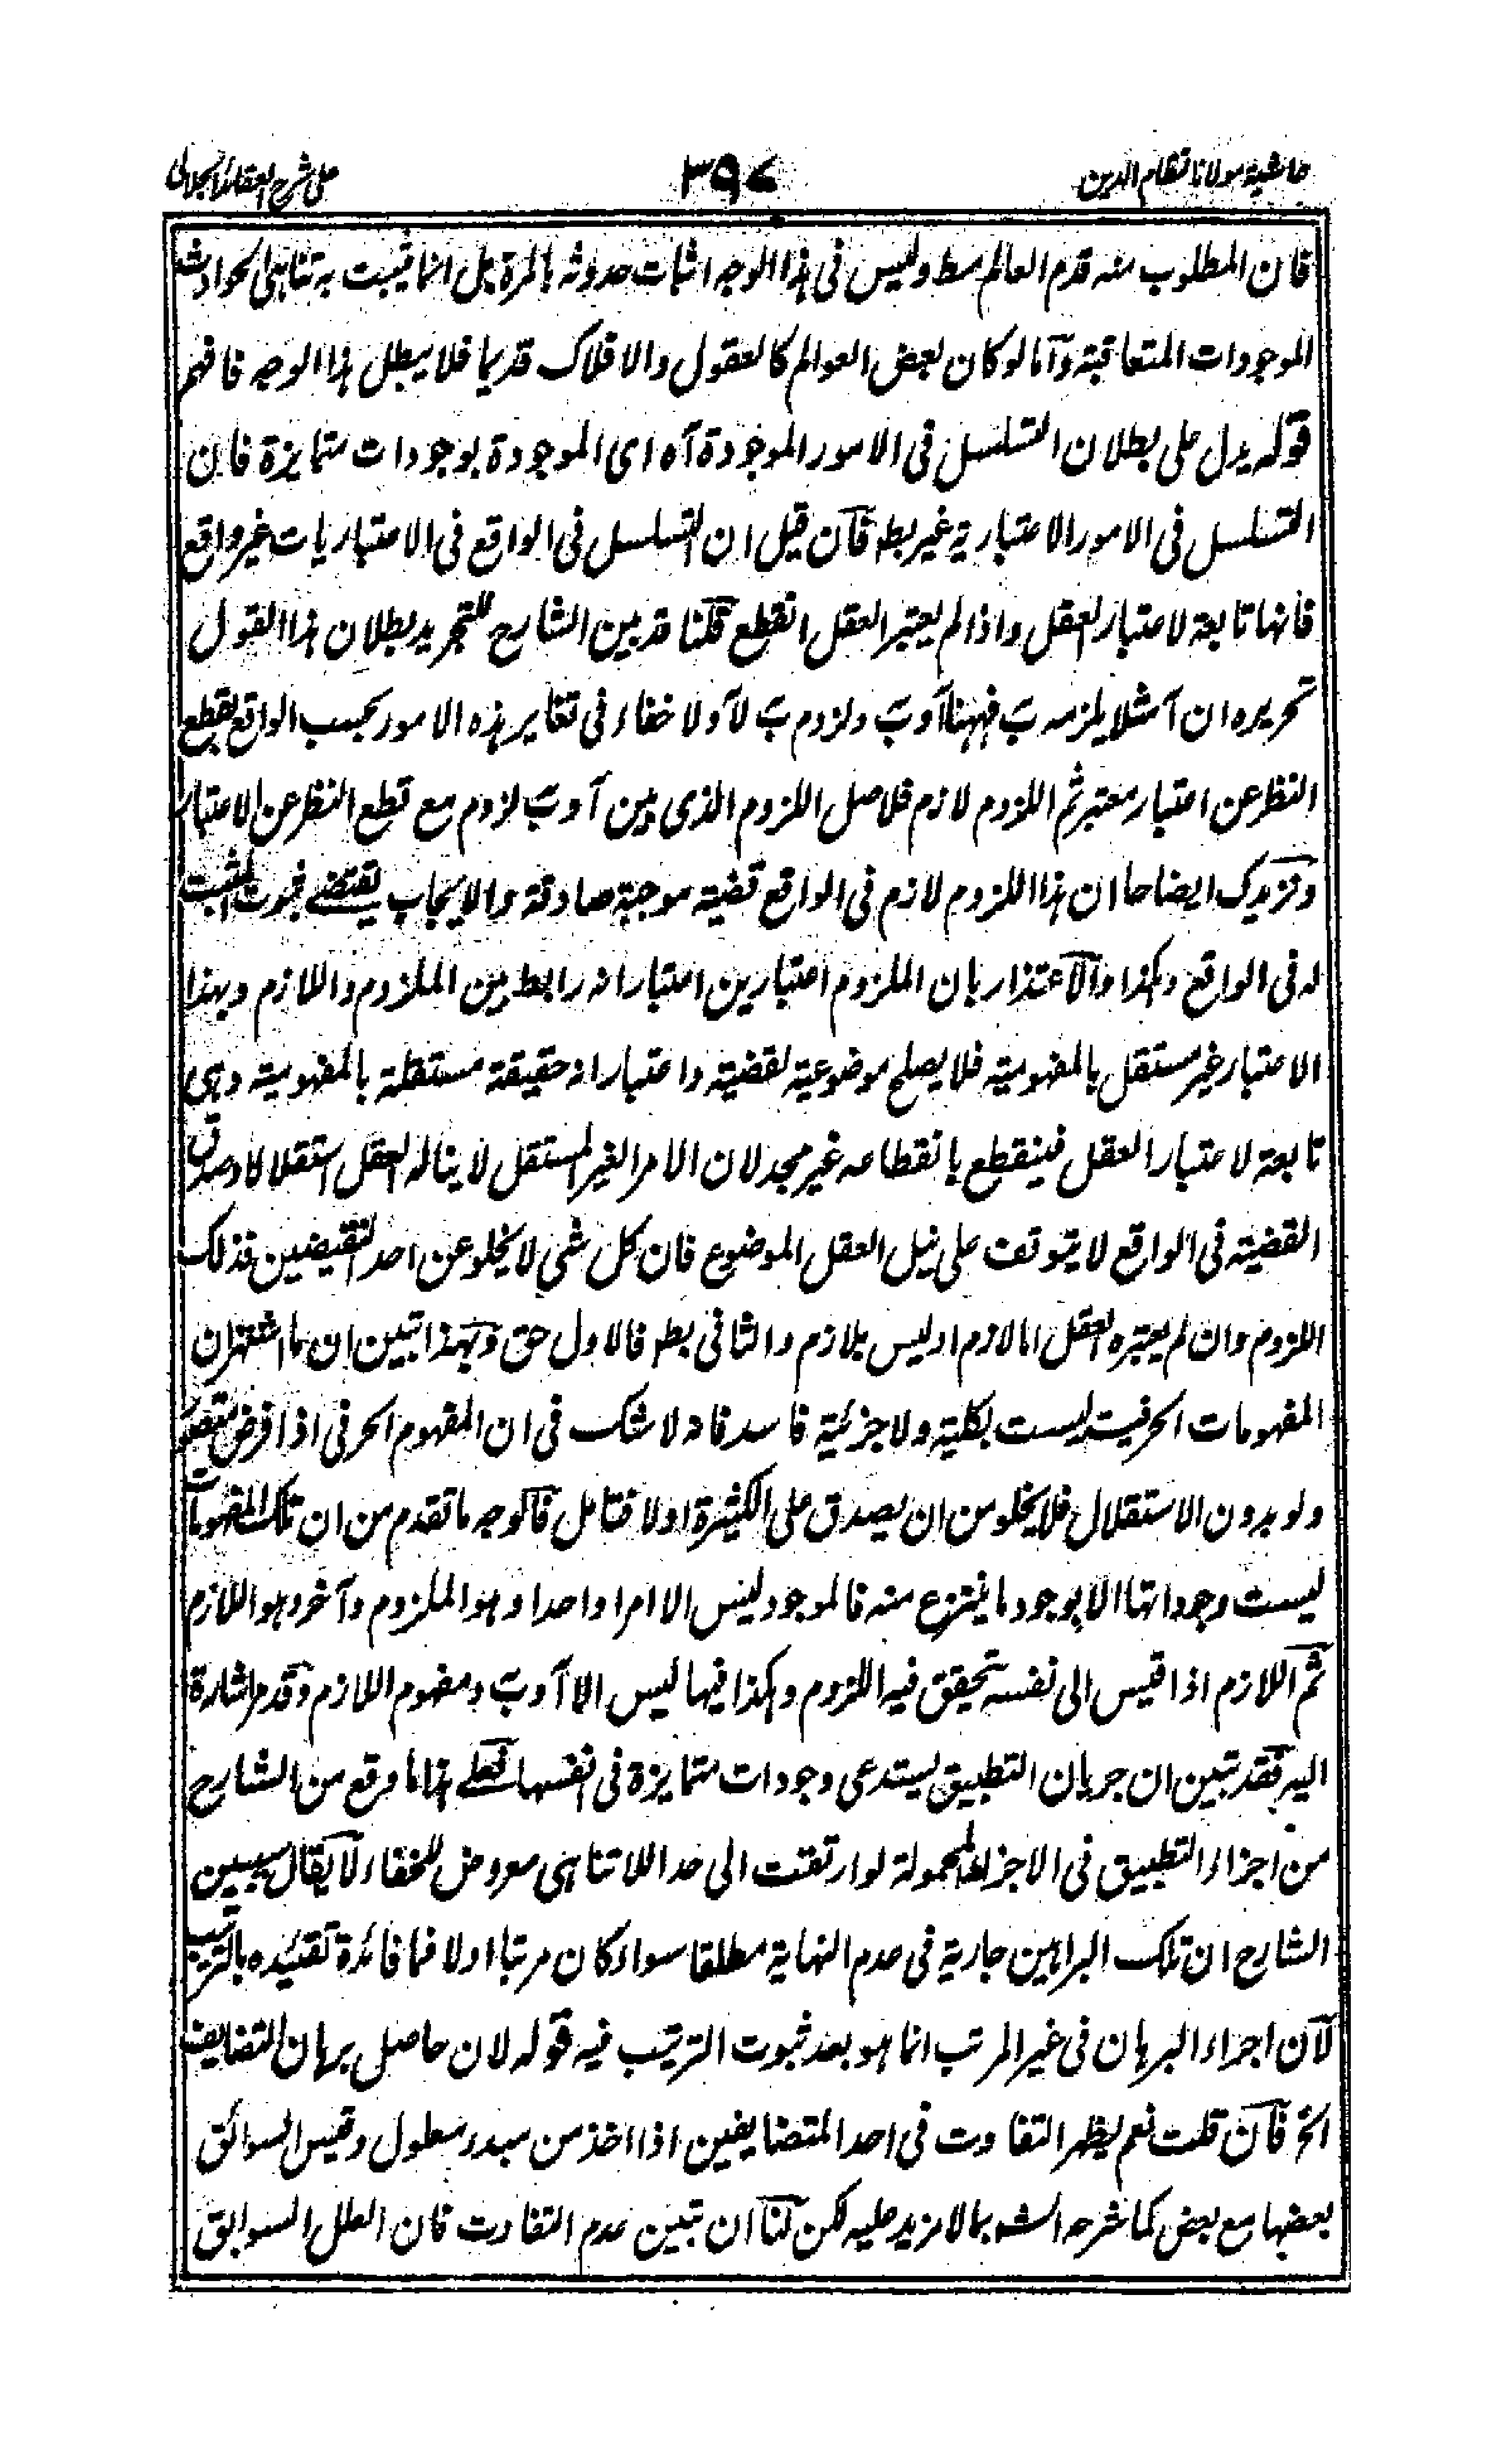 حاشية مولانا نظام الدين ٣٩٧ على شرح العقائد الجلالى
فان المطلوب منه قدم العالم مط وليس فى هذا الوجه اثبات حدوثه بالمرة بل انما يثبت به تناهى الحوادث
الموجودات المتعاقبة وآما لو كان بعض العوالم كالعقول والافلاك قديما فلا يبطل هذا الوجه فافهم
قوله يدل على بطلان التسلسل فى الامور الموجودة آه اى الموجودة بوجودات متمايزة فان
التسلسل فى الامور الاعتبارية غير بط فآن قيل ان التسلسل فى الواقع فى الاعتباريات غير واقع
فانها تابعة لاعتبار العقل واذا لم يعتبر العقل انقطع قلنا قد بين الشارح للتجريد بطلان هذا القول
تحريره ان آ مثلا يلزمه ب فههنا آ وب ولزوم ب لآ ولا خفاء فى تغاير هذه الامور بحسب الواقع بقطع
النظر عن اعتبار معتبر ثم اللزوم لازم فلاصل اللزوم الذى بين آ وب لزوم مع قطع النظر عن الاعتبار
ونزيدك ايضاحا ان هذا اللزوم لازم فى الواقع قضية موجبة صادقة والايجاب يقتضے ثبوت المثبت
له فى الواقع وهكذا والآعتذار بان الملزوم اعتبارين اعتبار انه رابط بين الملزوم واللازم وبهذا
الاعتبار غير مستقل بالمفهومية فلا يصلح موضوعية لقضية واعتبار انه حقيقة مستقلة بالمفهومية وهى
تابعة لاعتبار العقل فينقطع بانقطاعه غير مجد لان الامر الغير المستقل لا يناله العقل استقلالا وصدق
القضية فى الواقع لا يتوقف على نيل العقل الموضوع فان كل شى لا يخلو عن احد النقيضين فذلك
اللزوم وان لم يعتبره العقل اما لازم او ليس بلازم والثانى بط فالاول حق وبهذا تبين ان ما اشتهر ان
المفهومات الحرفية ليست بكلية ولا جزئية فاسد فانه لا شك فى ان المفهوم الحرفى اذا فرض
ولو بدون الاستقلال فلا يخلو من ان يصدق على الكثيرة او لا فتامل فآلوجه ما تقدم من ان تلك المفهومات
ليست وجوداتها الا بوجود ما ينتزع منه فالموجود ليس الا امرا واحدا وهو الملزوم وآخر وهو اللازم
ثم اللازم اذا قيس الى نفسه تحقق فيه اللزوم وهكذا فيها ليس الا آ وب ومفهوم اللازم وقد مر اشارة
اليه فقد تبين ان جريان التطبيق يستدعى وجودات متمايزة فى انفسها فعلے هذا ما وقع من الشارح
من اجزاء التطبيق فى الاجزاء المحمولة لو ارتقت الى حد اللاتناهى معروض للخفاء لا يقال سيبين
الشارح ان تلك البراهين جارية فى عدم النهاية مطلقا سواء كان مرتبا او لا فما فائدة تقئيده بالترتيب
لآن اجراء البرهان فى غير المرتب انما هو بعد ثبوت الترتيب فيه قوله لان حاصل برهان التضايف
الخ فآن قلت نعم يظهر التفاوت فى احد المتضايفين اذا اخذ من مبدء معلول وقيس السوابق
بعضها مع بعض كما شرحه الشه بما لا مزيد عليه لكن لنا ان نبين عدم التفاوت فان العلل السوابق